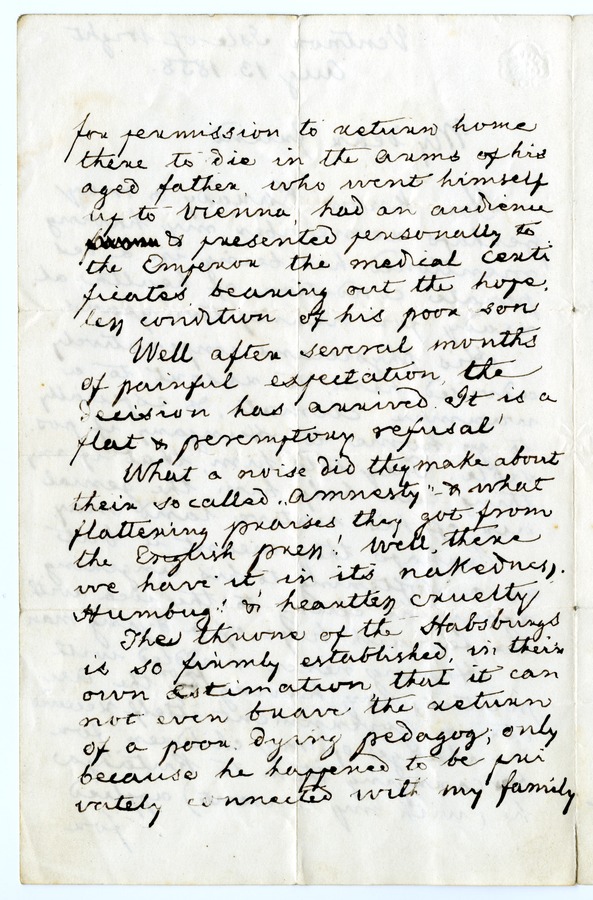 for permission to return home
there to die in the arms of his
aged father, who went himself
up to Vienna, had an audience
& presented personally to
the Emperor the medical certi
ficates, bearing out the hope,
less condition of his poor son
Well after several months
of painful expectation, the
decision has arrived. It is a
flat & peremptory refusal!
What a noise did they make about
their so called „amnesty" - & what
flattering praises they got from
the English press! Well, there
we have it in its nakedness.
Humbug! & heartless cruelty
The throne of the Habsburgs
is so firmly established, in their
own estimation, that it can
not even brave the return
of a poor dying pedagog, only
because he happened to be pri
vately connected with my family